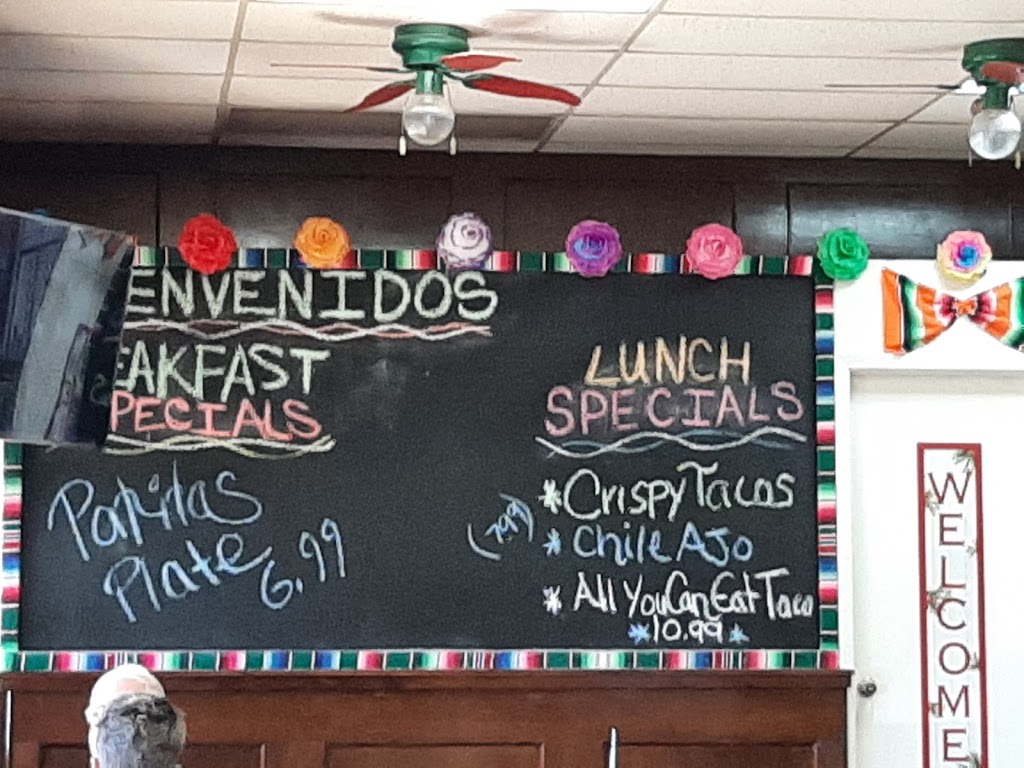 ENVENIDOS
EAKFAST
PECIALS
Plate 6.99
LUNCH
SPECIALS
* Crispy Tacos
(7.99) * Chile Ajo
* All You Can Eat Taco
* 10.99 *
WELCOME